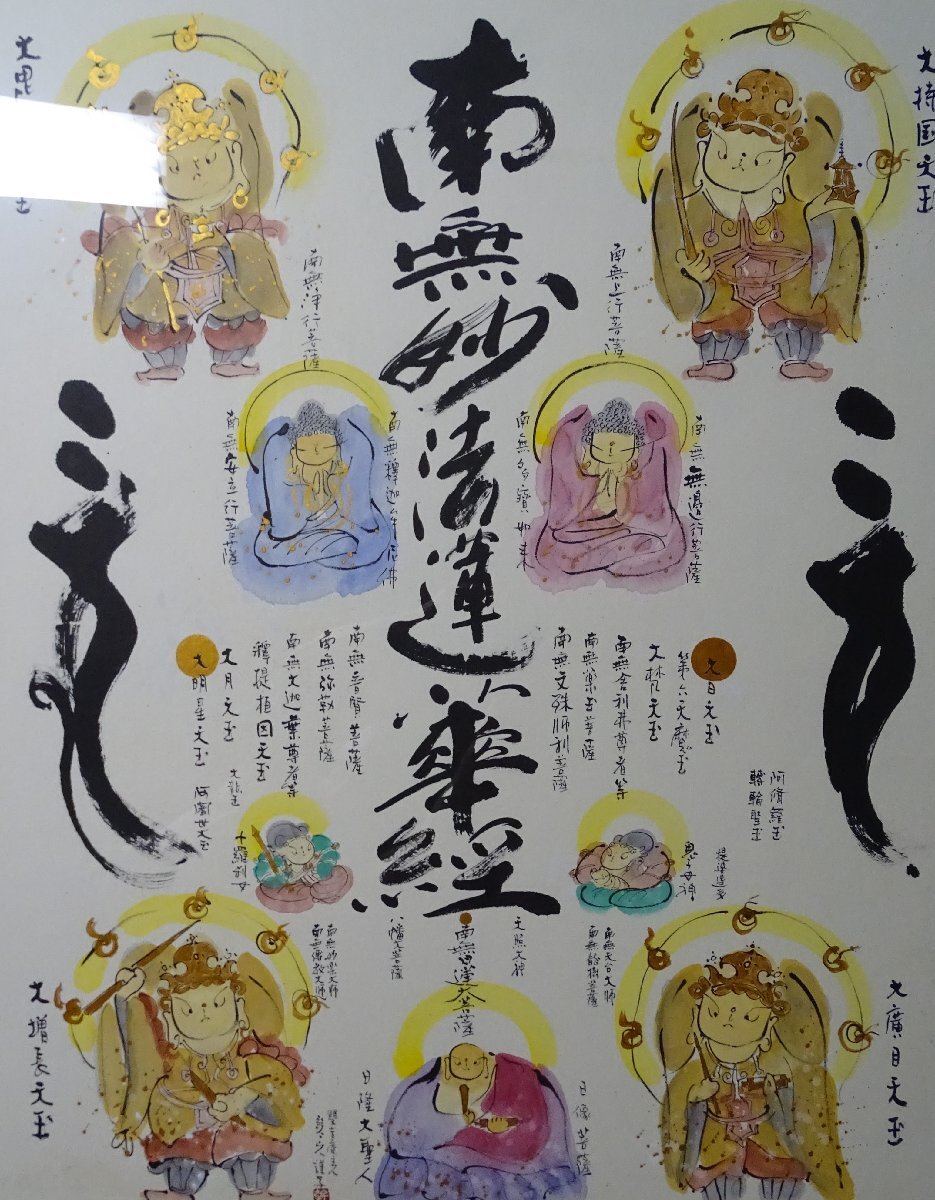 南無妙法蓮華経
大持国天王
南無上行菩薩
南無浄行菩薩
南無無邊行菩薩
南無多寳如来
南無釋迦牟尼佛
南無安立行菩薩
大日天王
第六天魔王
大梵天王
南無舎利弗尊者等
南無薬王菩薩
南無文殊師利菩薩
南無普賢菩薩
南無弥勒菩薩
南無大迦葉尊者等
釋提桓因天王
大月天王
大明星天王
阿脩羅王
轉輪聖王
提婆達多
鬼子母神
大龍王
阿闍世大王
十羅刹女
南無天台大師
南無龍樹菩薩
天照大神
南無日蓮大菩薩
八幡大菩薩
南無妙楽大師
南無傳教大師
大廣目天王
日像菩薩
日隆大聖人
大増長天王